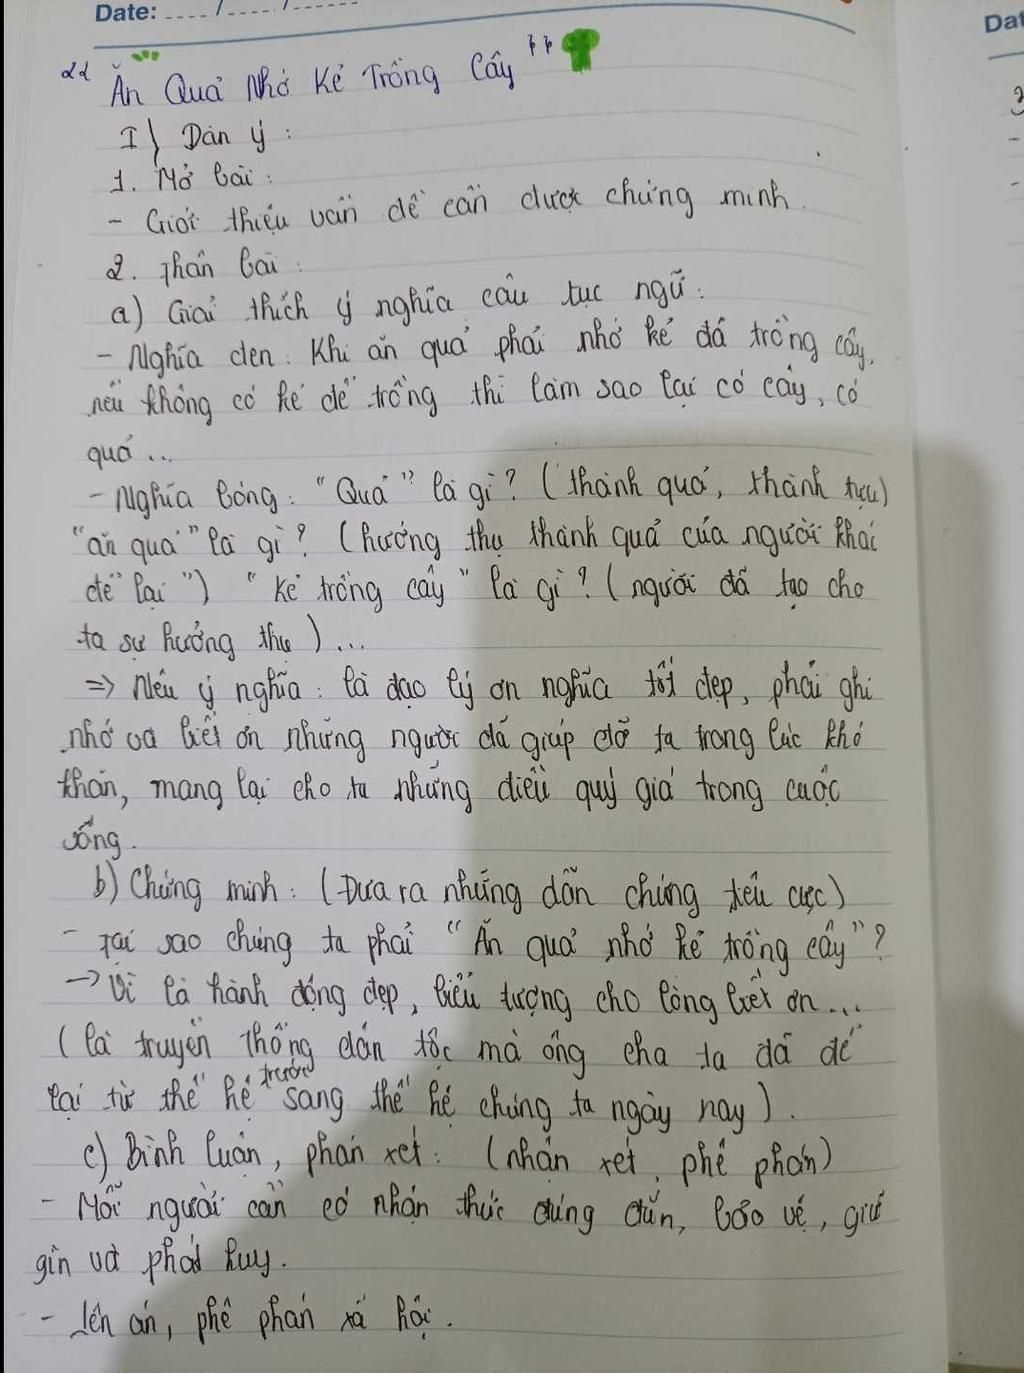 Date: ..../..../....
Dat
"Ăn Quả Nhớ Kẻ Trồng Cây"
I) Dàn ý :
1. Mở bài :
- Giới thiệu vấn đề cần được chứng minh.
2. Thân bài :
a) Giải thích ý nghĩa câu tục ngữ :
- Nghĩa đen : Khi ăn quả phải nhớ kẻ đã trồng cây.
nếu không có kẻ để trồng thì làm sao lại có cây, có
quả ...
- Nghĩa bóng : "Quả" là gì ? (thành quả, thành tựu)
"ăn quả" là gì ? (hưởng thụ thành quả của người khác
để lại") "kẻ trồng cây" là gì ? (người đã tạo cho
ta sự hưởng thụ) ...
=> Nêu ý nghĩa : là đạo lý ơn nghĩa tốt đẹp, phải ghi
nhớ và biết ơn những người đã giúp đỡ ta trong lúc khó
khăn, mang lại cho ta những điều quý giá trong cuộc
sống.
b) Chứng minh : (Đưa ra những dẫn chứng tiêu cực)
- Tại sao chúng ta phải "Ăn quả nhớ kẻ trồng cây" ?
-> Vì là hành động đẹp, biểu tượng cho lòng biết ơn...
(là truyền thống dân tộc mà ông cha ta đã để
lại từ thế hệ trước sang thế hệ chúng ta ngày nay).
c) Bình luận, phán xét : (nhận xét, phê phán)
- Mỗi người cần có nhận thức đúng đắn, bảo vệ, giữ
gìn và phát huy.
- Lên án, phê phán xã hội.